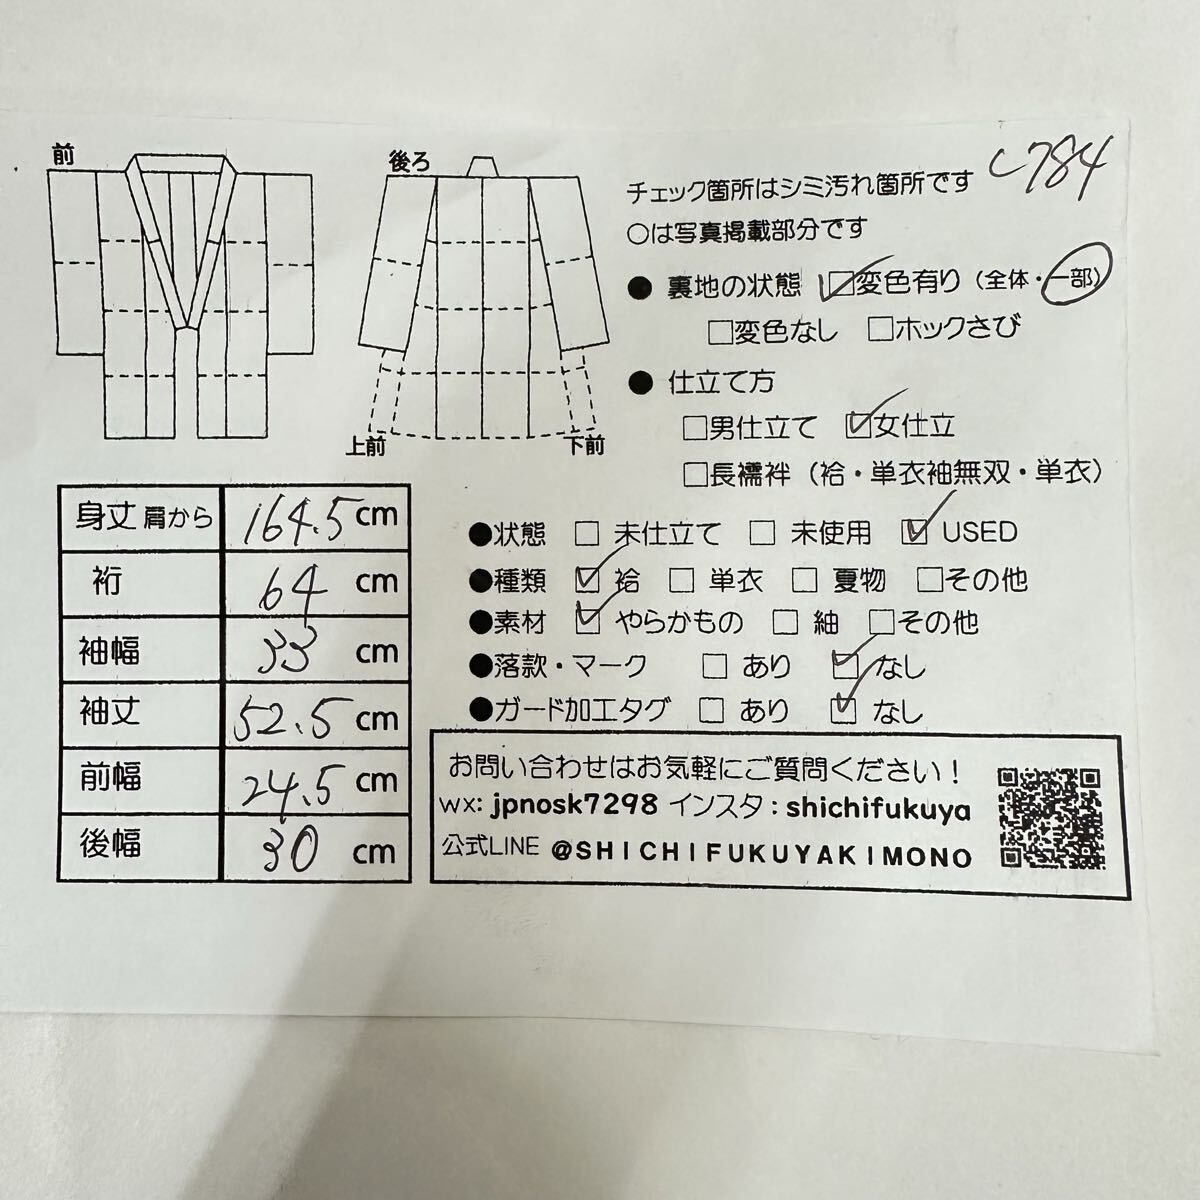 前
後ろ
上前
下前
C784
チェック箇所はシミ汚れ箇所です
○は写真掲載部分です
● 裏地の状態 ☑変色有り (全体・一部)
□変色なし □ホックさび
● 仕立て方
□男仕立て ☑女仕立
□長襦袢 (袷・単衣袖無双・単衣)
●状態 □ 未仕立て □ 未使用 ☑ USED
●種類 ☑ 袷 □ 単衣 □ 夏物 □その他
●素材 ☑ やらかもの □ 紬 □その他
●落款・マーク □ あり ☑ なし
●ガード加工タグ □ あり ☑ なし
身丈 肩から 164.5 cm
裄 64 cm
袖幅 33 cm
袖丈 52.5 cm
前幅 24.5 cm
後幅 30 cm
お問い合わせはお気軽にご質問ください!
wx: jpnosk7298 インスタ: shichifukuya
公式LINE @SHICHIFUKUYAKIMONO